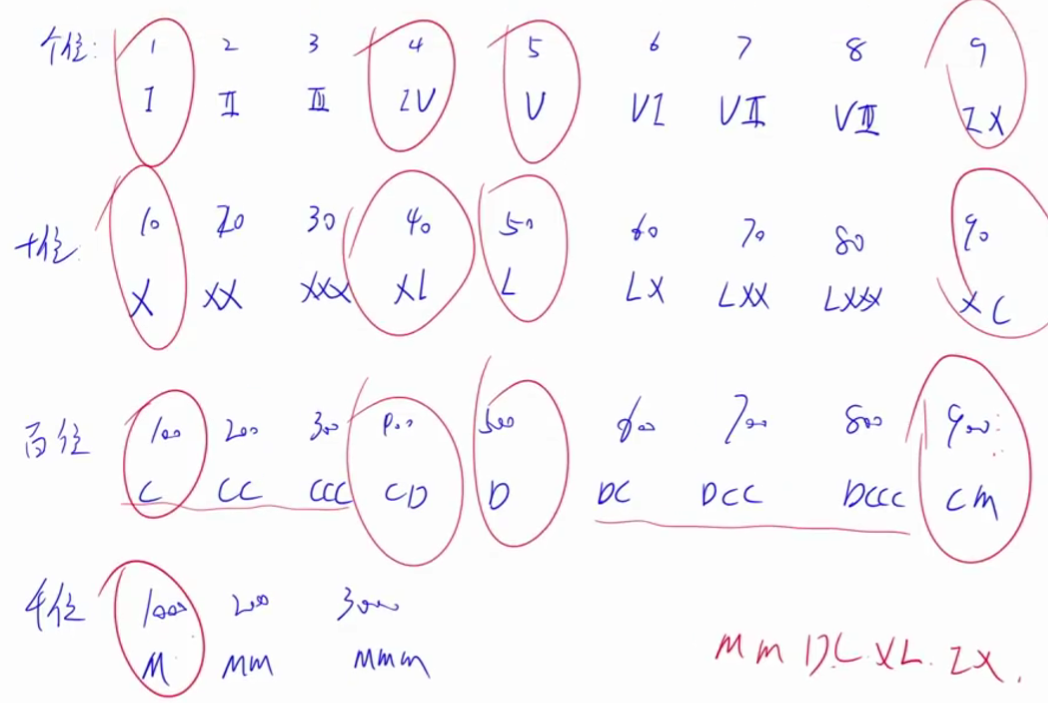 个位: 1 2 3 4 5 6 7 8 9
I II III IV V VI VII VIII IX
十位: 10 20 30 40 50 60 70 80 90
X XX XXX XL L LX LXX LXXX XC
百位 100 200 300 400 500 600 700 800 900
C CC CCC CD D DC DCC DCCC CM
千位 1000 2000 3000
M MM MMM
MMDC.XL.IX.